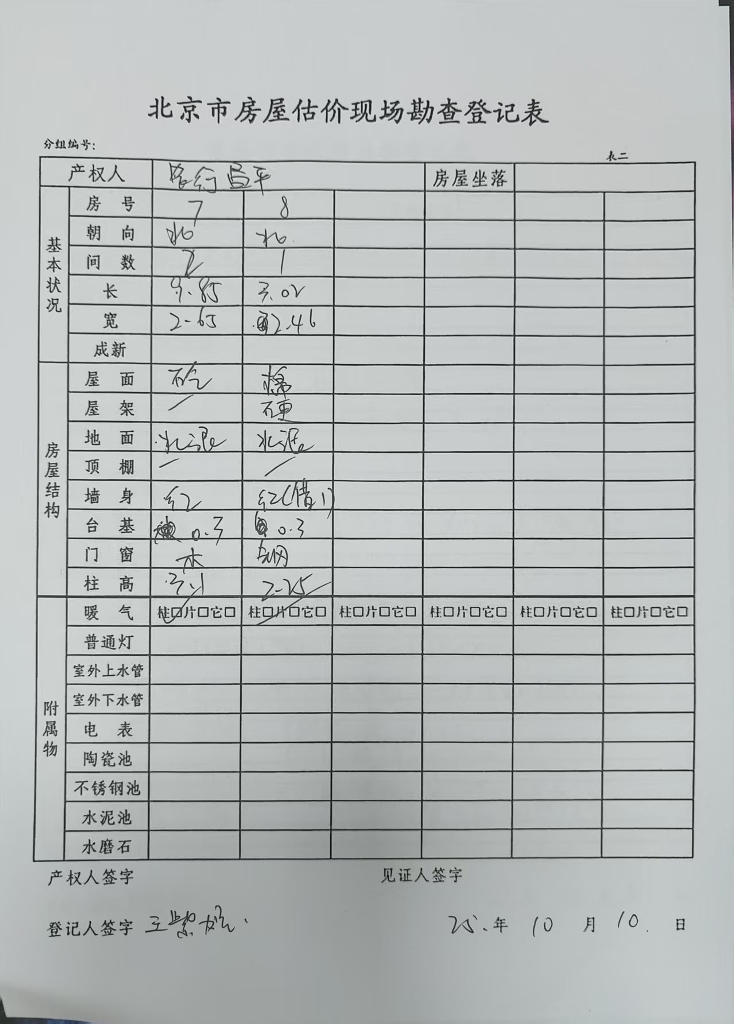 北京市房屋估价现场勘查登记表
分组编号: 表二
产权人 昌平 房屋坐落
基本状况
房号 7 8
朝向 北 北
间数 2 1
长 3.85 3.02
宽 2.65 2.46
成新
房屋结构
屋面 砼 棉
屋架 / 硬
地面 水泥 水泥
顶棚 / /
墙身 红 红(借1)
台基 0.3 0.3
门窗 木 钢
柱高 3.1 2.25
附属物
暖气 柱口片口它口 柱口片口它口 柱口片口它口 柱口片口它口 柱口片口它口 柱口片口它口
普通灯
室外上水管
室外下水管
电表
陶瓷池
不锈钢池
水泥池
水磨石
产权人签字 见证人签字
登记人签字 王紫 25.年 10 月 10. 日